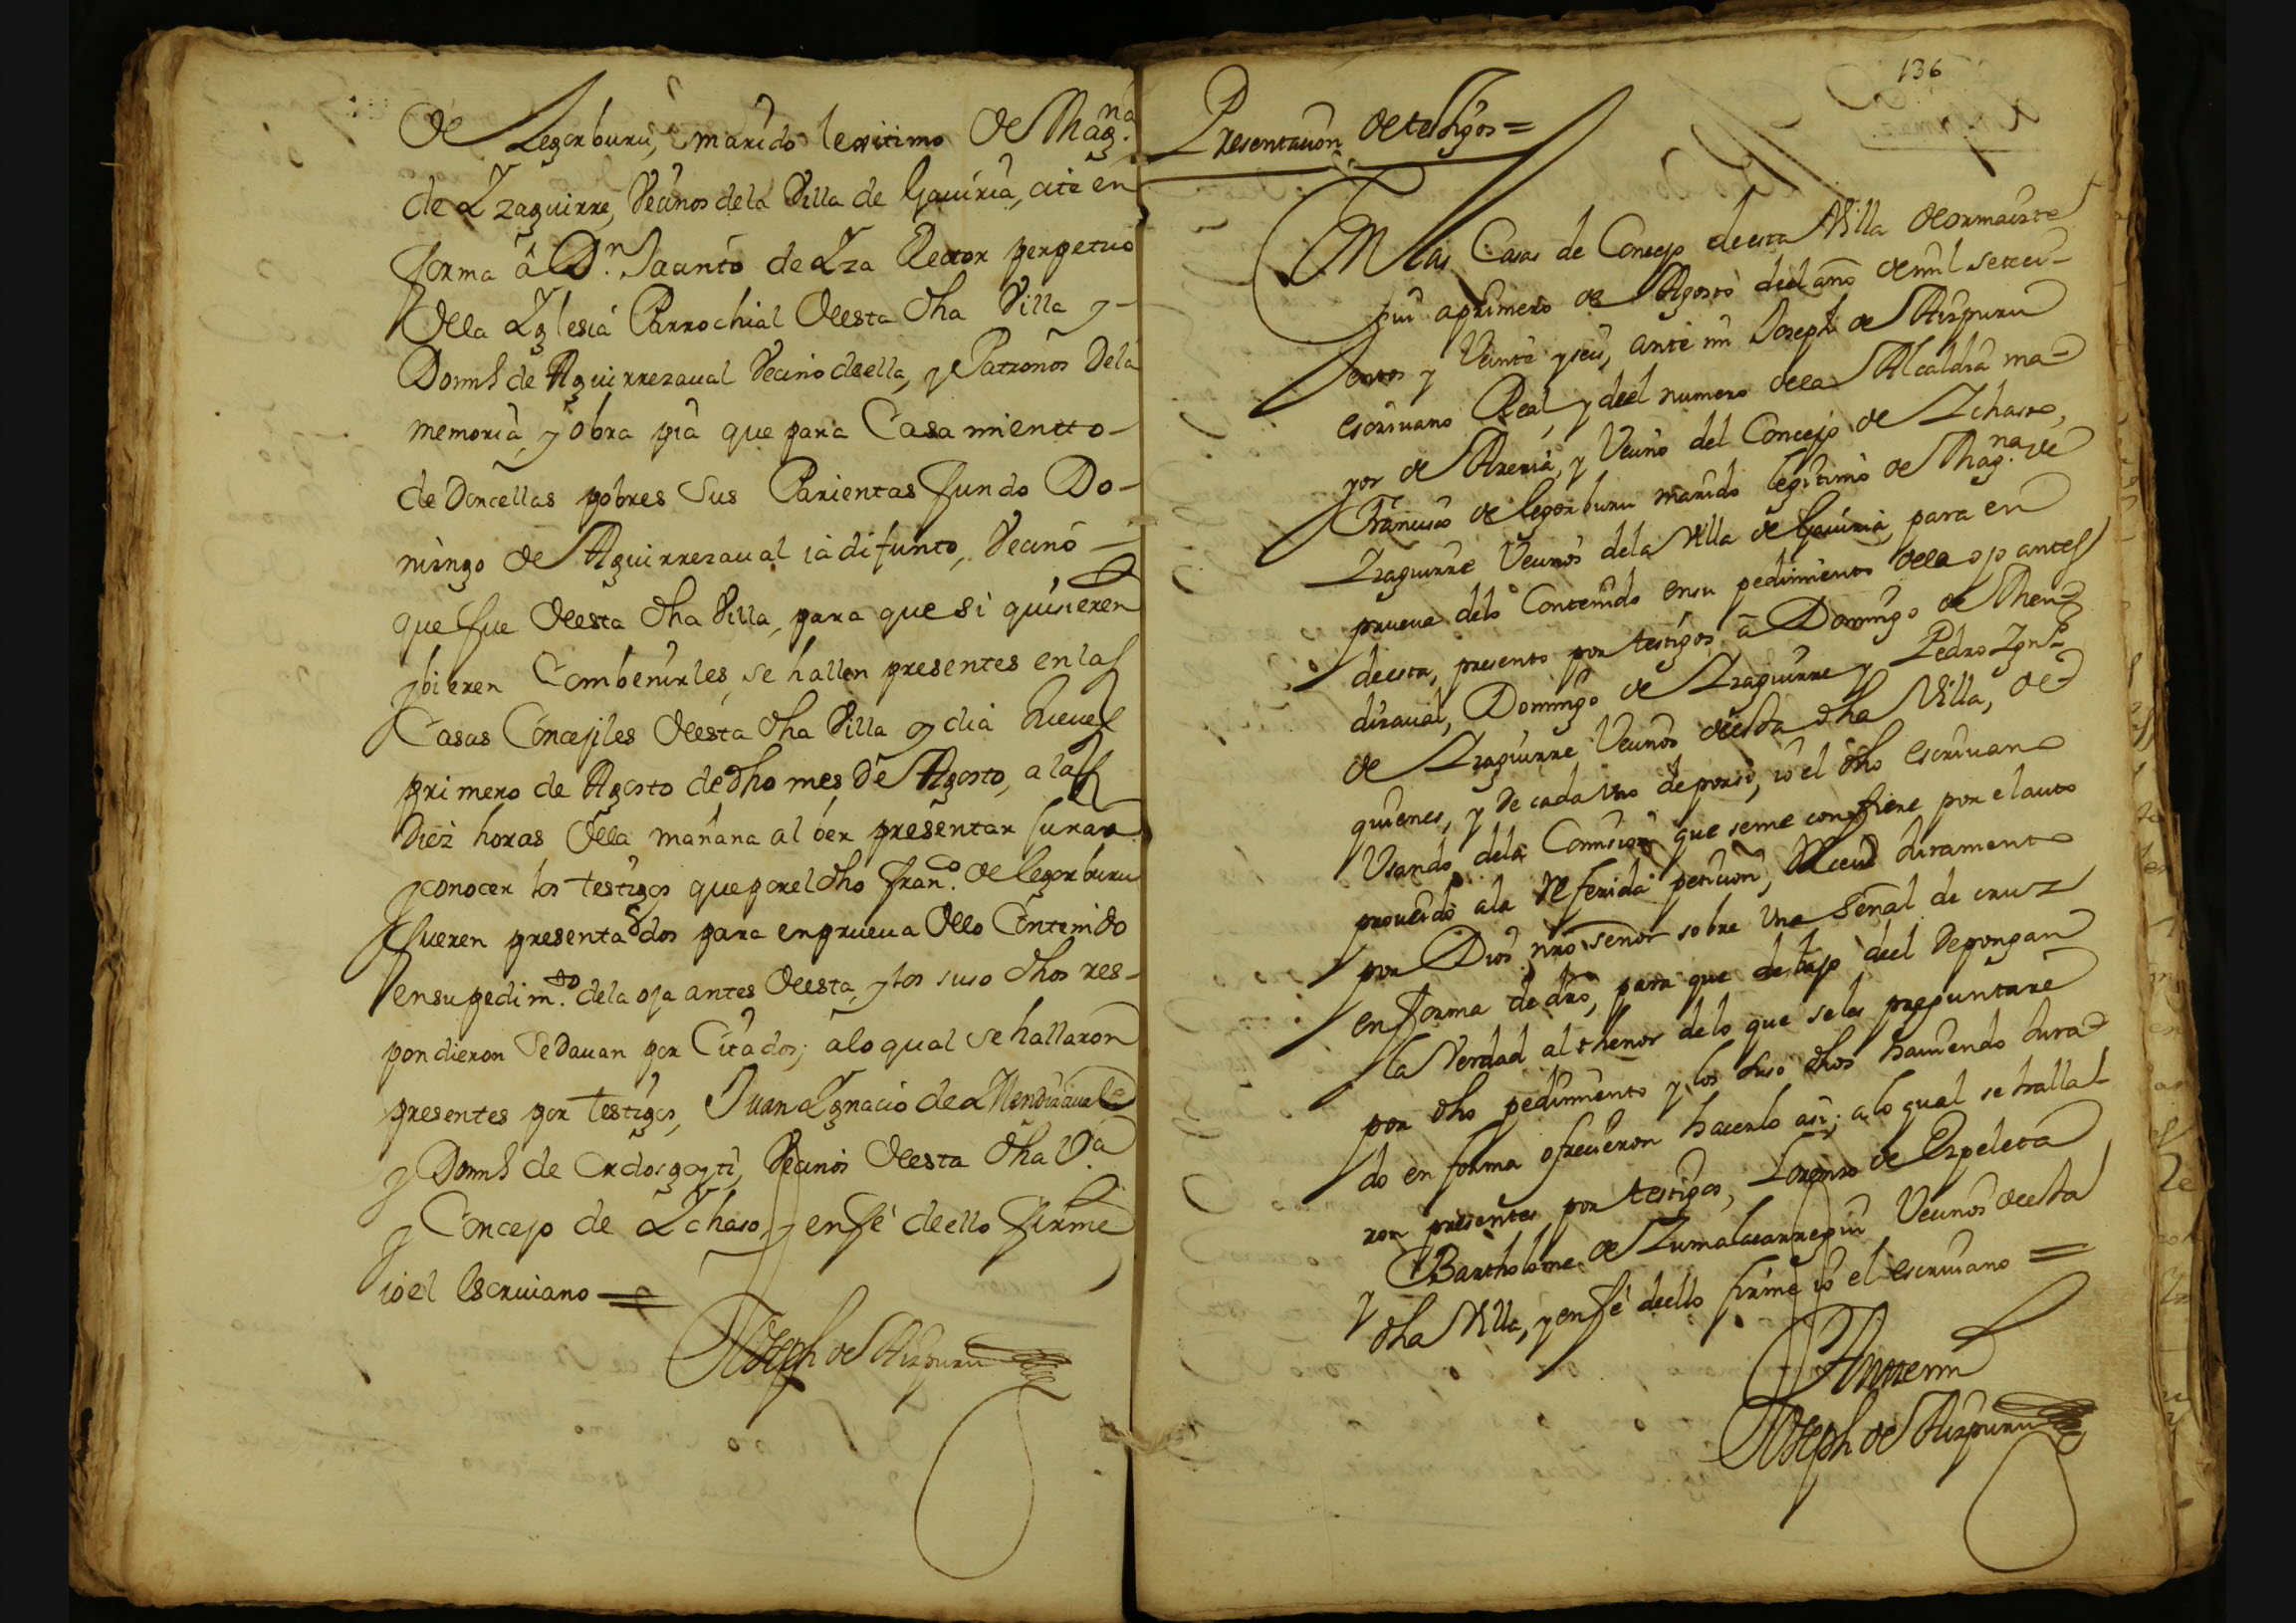 de Legorburu, marido lexitimo de Mag.na
de Yzaguirre, Vecinos dela Villa de Gauiria, cite en
forma â Dn. Jacinto de Yza Rector perpetuo
della Yglesia Parrochial desta dha Villa y
Domš de Aguirrezaual Vecino deella, y Patronos dela
memoria, y obra pia que para Casamientto
de Doncellas pobres sus Parientas fundo Do-
mingo de Aguirrezaual ia difunto, Vecino
que fue desta dha Villa, para que si quisieren
y bieren Combenirles, se hallen presentes en las
Casas Concejiles desta dha Villa y dia Jueues
primero de Agosto de dho mes de Agosto, a las
Diez horas della mañana al ber presentar jurar
y conocer los testigos que por el dho Fran.co de legorburu
fueren presentados para en prueua dello Contenido
en su pedim.to dela oja antes desta, y los suso dhos res-
pondieron se dauan por Citados; a lo qual se hallaron
presentes por testigos, Juan Ygnacio de Mendizaual
y Domš de Ordosgoyti, Vecinos desta dha V.a
y Concejo de Ychaso, y en fé deello firmé
io el escriuano =
Joseph de Aizpuru
136
Presentacion de testigos =
En las Casas de Concejo de esta Villa de ormaizte
gui a primero de Agosto de el año de mil setecien-
tos y Veinte y seis, ante mi Joseph de Aizpuru
escriuano Real, y deel numero dela Alcaldia ma-
yor de Areria, y Vecino del Concejo de Ychaso,
Francisco de legorburu marido legitimo de Mag.na de
Yzaguirre Vecinos dela Villa de Gauiria, para en
prueua delo Contenido en su pedimiento dela oja antes
de esta, presento por testigos â Domingo de Men-
dizaual, Domingo de Yzaguirre y Pedro Ygn.o
de Yzaguirre Vecinos de esta dha Villa, de
quienes, y de cada Vno de por si, io el dho escriuano
Vsando dela Comision que se me confiere por el auto
proueido ala referida peticion, Reciui Juramento
por Dios nro señor sobre Vna señal de cruz
en forma de dro, para que debajo deel depongan
la Verdad al thenor delo que se les preguntare
por dho pedimiento y los suso dhos hauiendo Jura-
do en forma ofrecieron hacerlo asi; alo qual se halla-
ron presentes por testigos, Lorenzo de Ezpeleta
y Bartholome de Zumalacarregui Vecinos de esta
dha Villa, y en fé deello firmé io el escriuano =
Ante mi
Joseph de Aizpuru